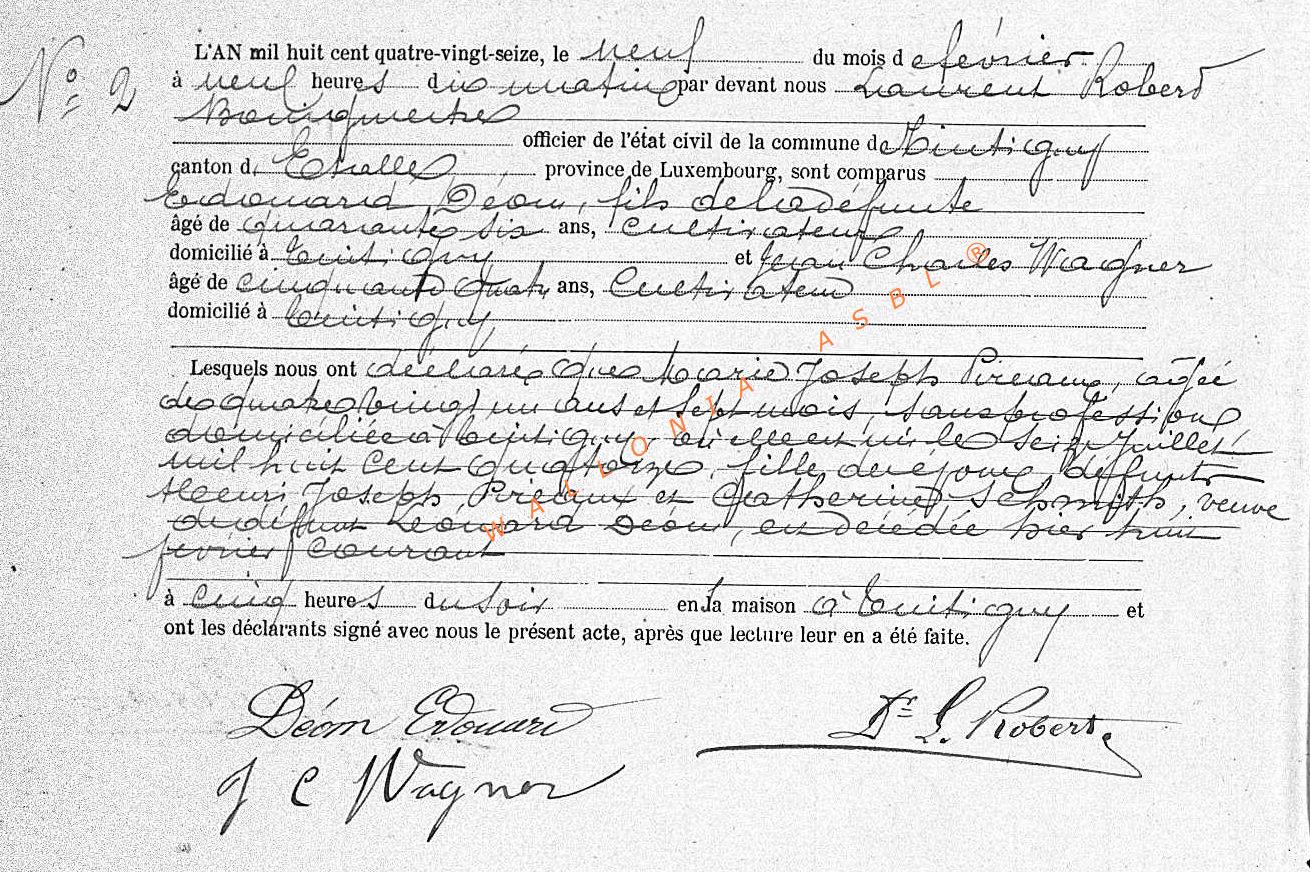 N° 2
L'AN mil huit cent quatre-vingt-seize, le neuf du mois de février
à neuf heures du matin par devant nous Laurent Robert
Bourgmestre
officier de l'état civil de la commune de Tintigny
canton d'Etalle province de Luxembourg, sont comparus
Edouard Déom, fils de la défunte
âgé de quarante six ans, Cultivateur
domicilié à Tintigny et Jean Charles Wagner
âgé de cinquante quatre ans, Cultivateur
domicilié à Tintigny
Lesquels nous ont déclaré que Marie Joseph Pireaux, agée
de quatre vingt un ans et sept mois, sans profession
domiciliée à Tintigny où elle est née le seize Juillet
mil huit cent quatorze, fille des époux défunts
Henri Joseph Pireaux et Catherine Schmith, veuve
du défunt Léonard Déom, est décédée hier huit
février courant
à cinq heures du soir en sa maison à Tintigny et
ont les déclarants signé avec nous le présent acte, après que lecture leur en a été faite.
Déom Edouard
Dr L. Robert
J C Wagner
WALLONIA ASBL ®